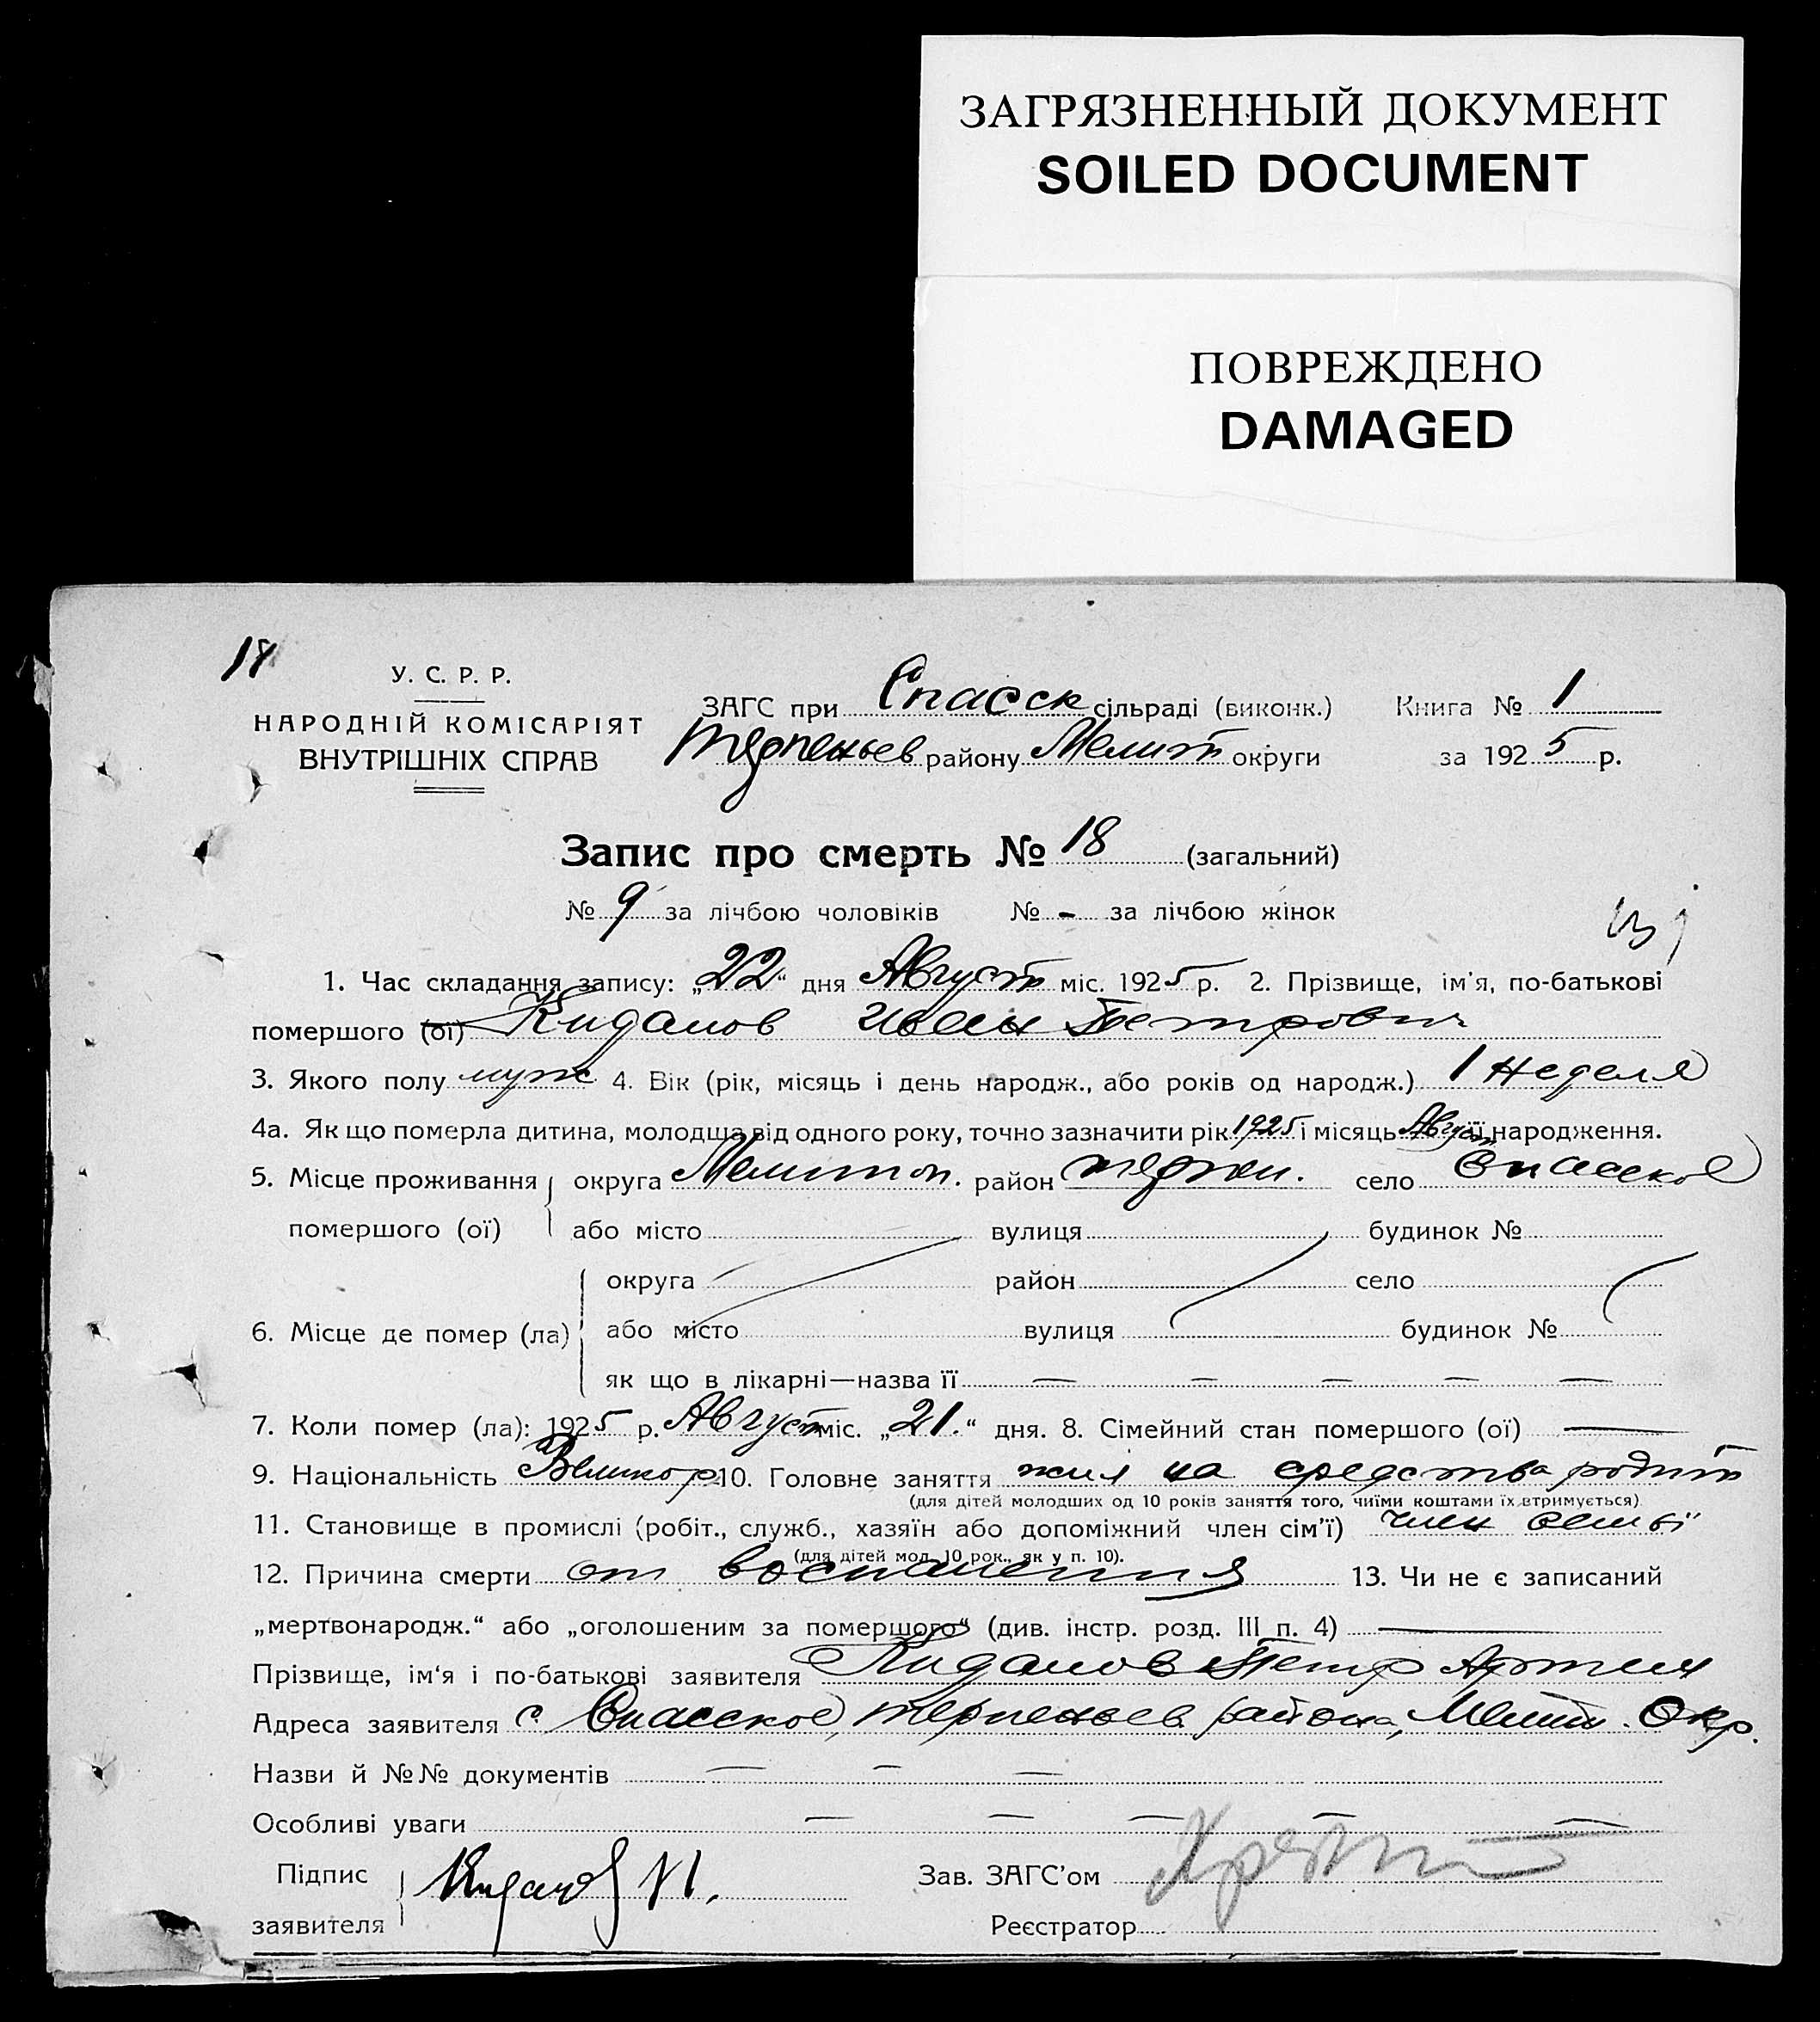 ЗАГРЯЗНЕННЫЙ ДОКУМЕНТ
SOILED DOCUMENT
ПОВРЕЖДЕНО
DAMAGED
18
У. С. Р. Р.
НАРОДНІЙ КОМІСАРІЯТ
ВНУТРІШНІХ СПРАВ
ЗАГС при Спасск сільраді (виконк.) Книга № 1
Терпеньев району Мелит округи за 1925 р.
Запис про смерть № 18 (загальний)
№ 9 за лічбою чоловіків № - за лічбою жінок
1. Час складання запису: „22“ дня Август міс. 1925 р. 2. Прізвище, ім'я, по-батькові
помершого (ої) Кидалов Иван Петрович
3. Якого полу муж 4. Вік (рік, місяць і день народж., або років од народж.) 1 неделя
4а. Як що померла дитина, молодща від одного року, точно зазначити рік 1925 і місяць Август її народження.
5. Місце проживання округа Мелитоп. район терпен. село Спасское
помершого (ої) або місто вулиця будинок №
округа район село
6. Місце де помер (ла) або місто вулиця будинок №
як що в лікарні—назва її — — — — —
7. Коли помер (ла): 1925 р. Август міс. „21.“ дня. 8. Сімейний стан помершого (ої) —
9. Національність Великор 10. Головне заняття жил на средства родит
(для дітей молодших од 10 років заняття того, чиїми коштами їх втримується)
11. Становище в промислі (робіт., служб., хазяїн або допоміжний член сім'ї) член семьї
(для дітей мол. 10 рок., як у п. 10).
12. Причина смерти от воспаления 13. Чи не є записаний
„мертвонародж.“ або „оголошеним за помершого“ (див. інстр. розд. III п. 4) —
Прізвище, ім'я і по-батькові заявителя Кидалов Петр Артем
Адреса заявителя с. Спасское, терпеньев района, Мелит. Окр.
Назви й №№ документів — — —
Особливі уваги — — — — —
Підпис
заявителя Кидалов П.
Зав. ЗАГС'ом
Реєстратор